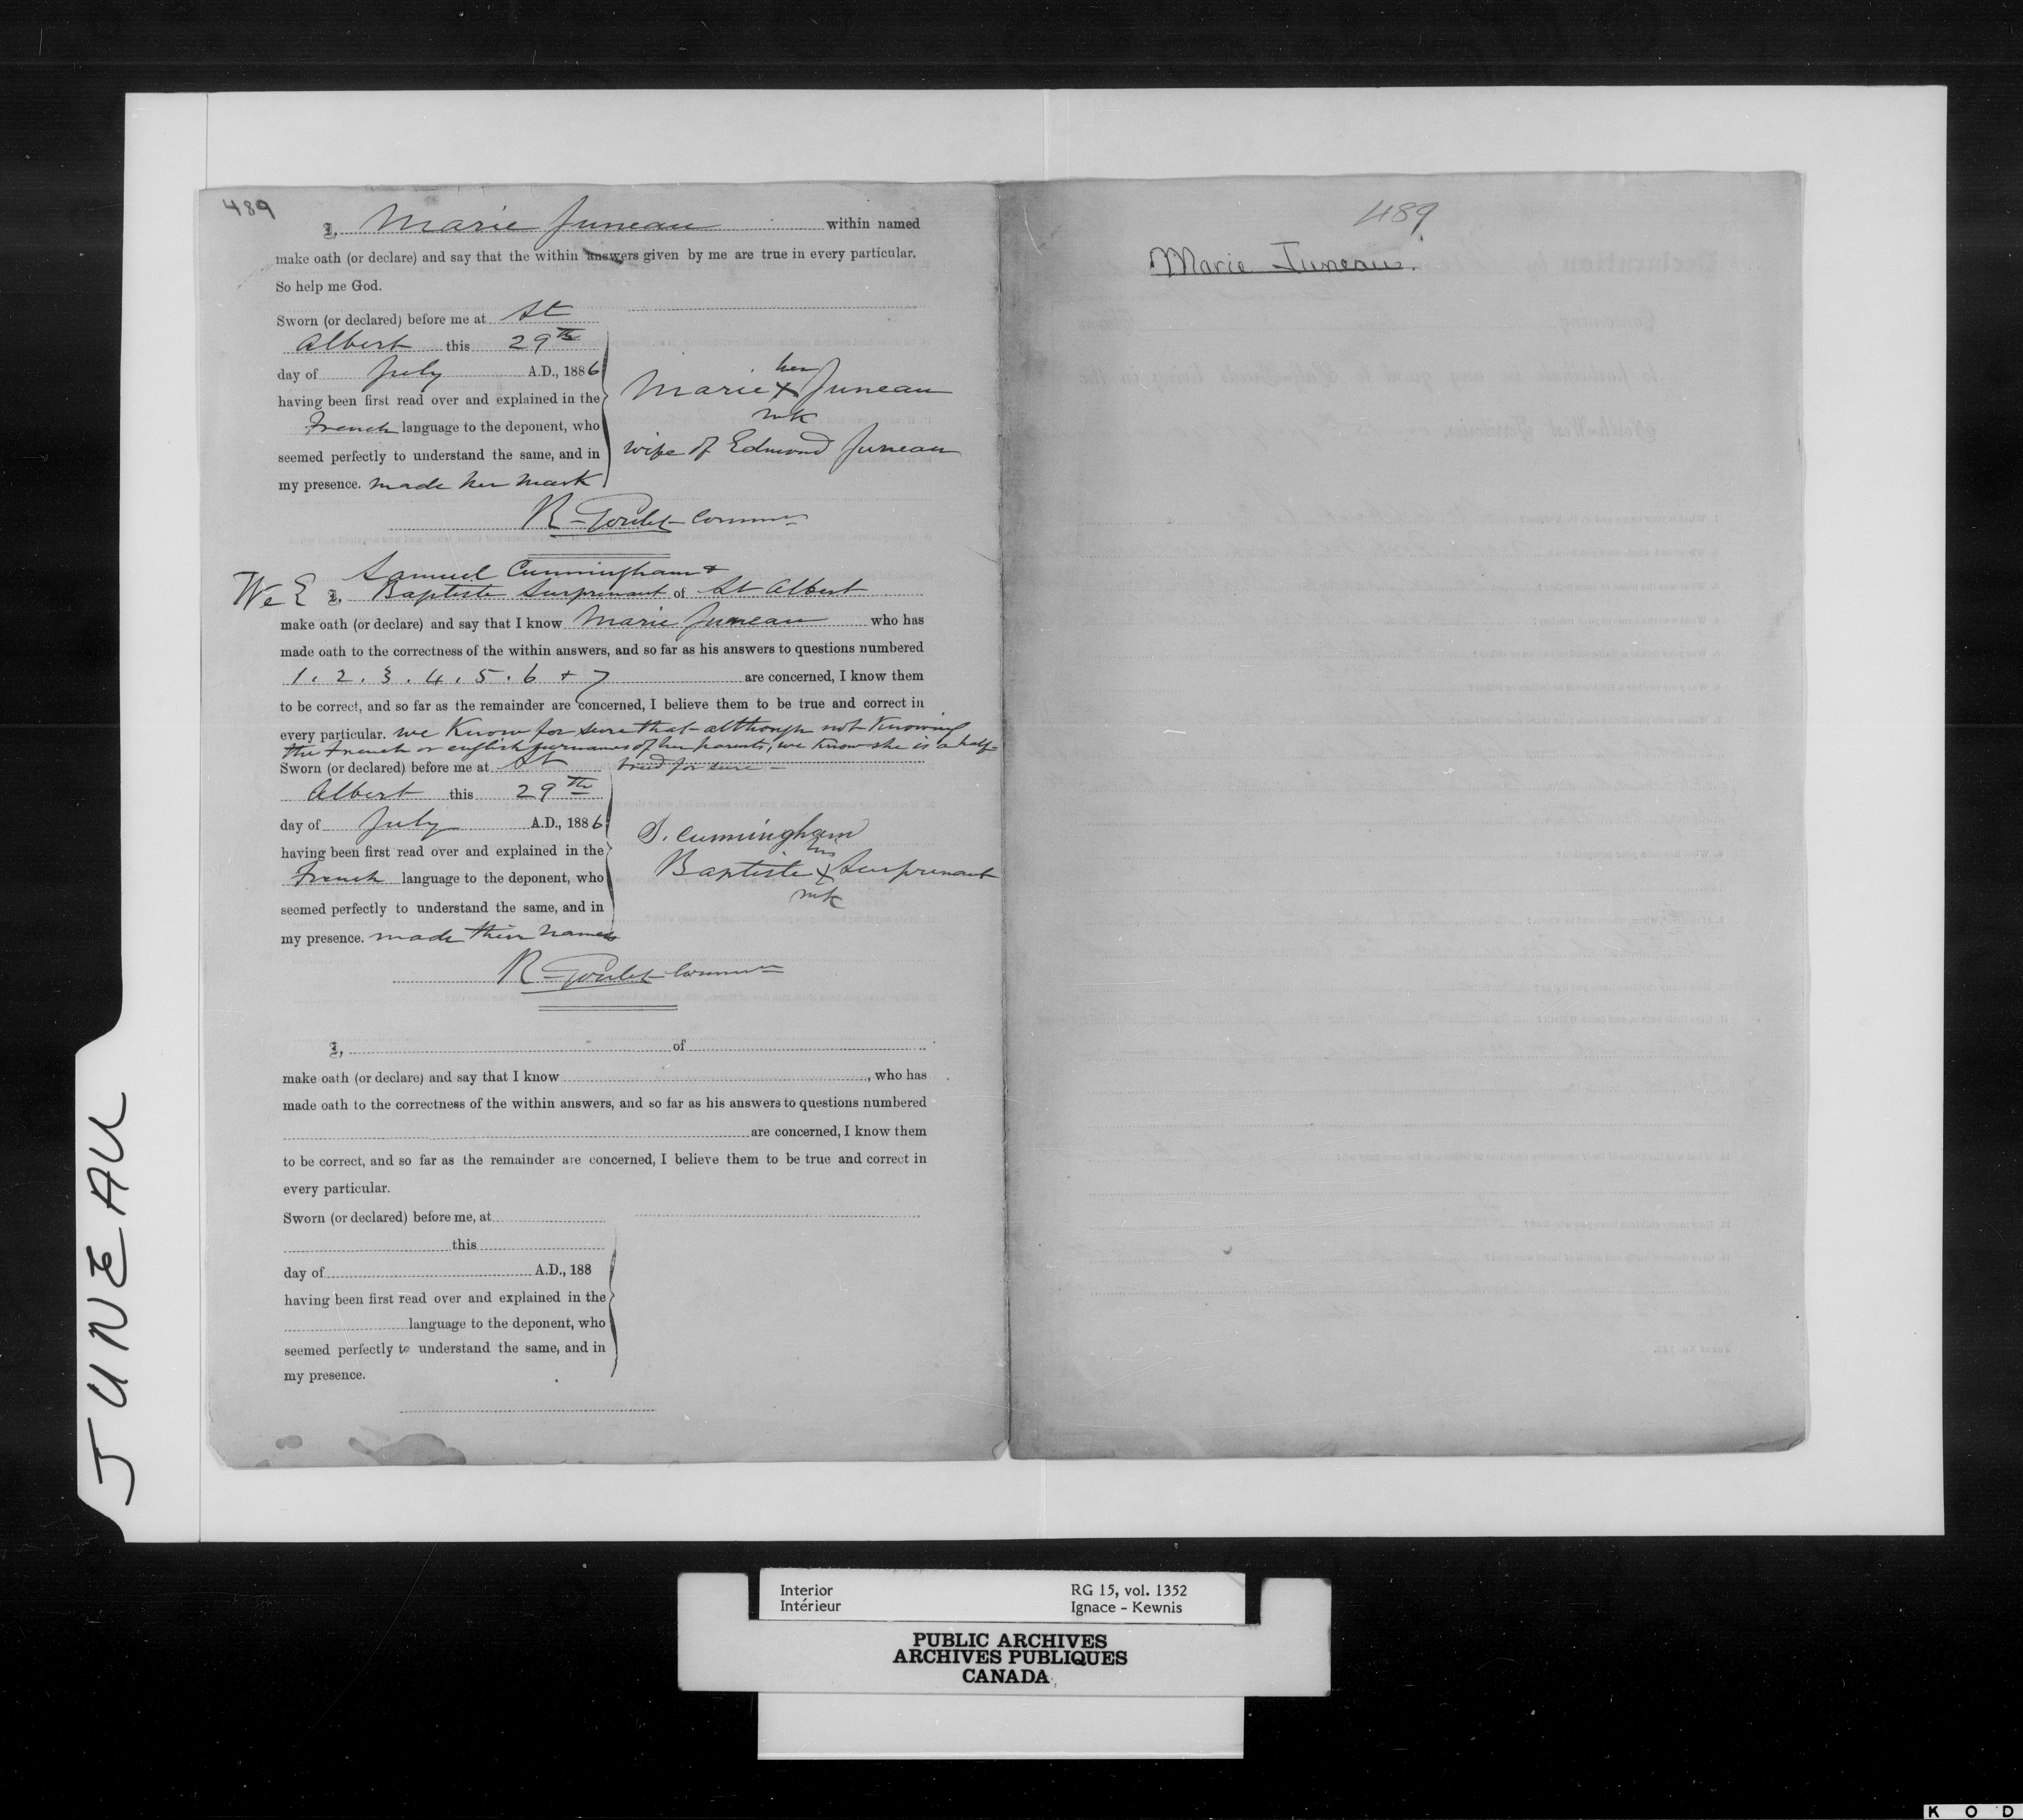 489
I, Marie Juneau within named
make oath (or declare) and say that the within answers given by me are true in every particular.
So help me God.
Sworn (or declared) before me at St
Albert this 29th
day of July A.D., 1886
having been first read over and explained in the
French language to the deponent, who
seemed perfectly to understand the same, and in
my presence. made her mark
her
Marie X Juneau
mk
wife of Edmond Juneau
R. Goulet
Samuel Cunningham &
We I, Baptiste Surprenant of St Albert
make oath (or declare) and say that I know Marie Juneau who has
made oath to the correctness of the within answers, and so far as his answers to questions numbered
1. 2. 3. 4. 5. 6 + 7 are concerned, I know them
to be correct, and so far as the remainder are concerned, I believe them to be true and correct in
every particular. we know for sure that although not knowing
the French or english surnames of her parents, we know she is a half-
breed for sure -
Sworn (or declared) before me at St
Albert this 29th
day of July A.D., 1886
having been first read over and explained in the
French language to the deponent, who
seemed perfectly to understand the same, and in
my presence. made their names
S. Cunningham
his
Baptiste X Surprenant
mk
R. Goulet
I, of
make oath (or declare) and say that I know , who has
made oath to the correctness of the within answers, and so far as his answers to questions numbered
are concerned, I know them
to be correct, and so far as the remainder are concerned, I believe them to be true and correct in
every particular.
Sworn (or declared) before me, at
this
day of A.D., 188
having been first read over and explained in the
language to the deponent, who
seemed perfectly to understand the same, and in
my presence.
489
Marie Juneau.
JUNEAU
Interior RG 15, vol. 1352
Intérieur Ignace - Kewnis
PUBLIC ARCHIVES
ARCHIVES PUBLIQUES
CANADA
K O D